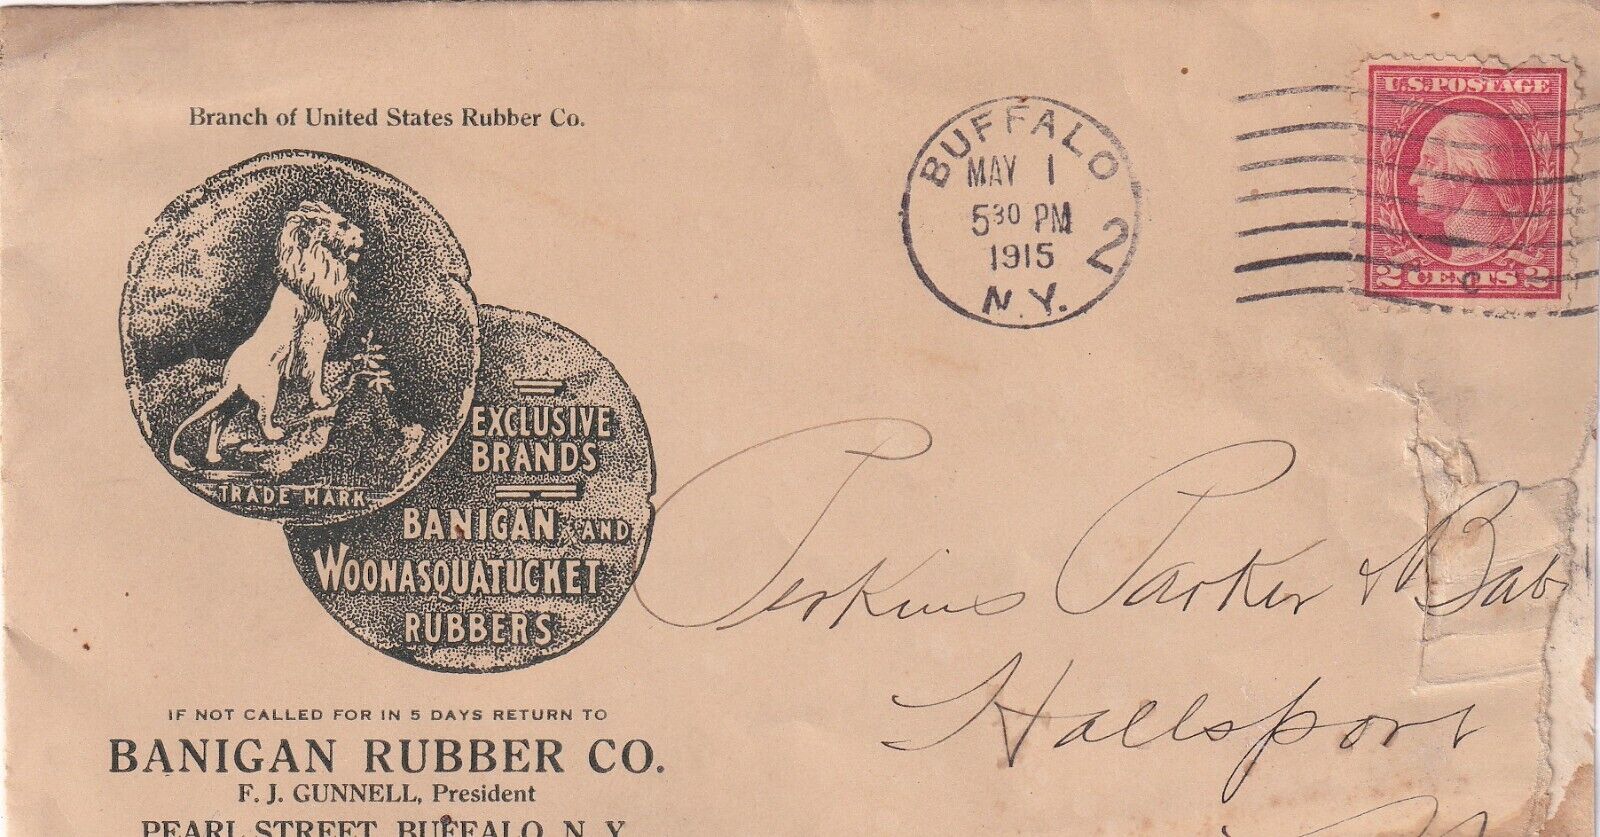 Branch of United States Rubber Co.
TRADE MARK
EXCLUSIVE
BRANDS
BANIGAN AND
WOONASQUATUCKET
RUBBERS
IF NOT CALLED FOR IN 5 DAYS RETURN TO
BANIGAN RUBBER CO.
F. J. GUNNELL, President
PEARL STREET, BUFFALO, N. Y.
BUFFALO
MAY 1
5 30 PM
1915
N.Y.
2
U.S. POSTAGE
2 CENTS 2
Perkins Parker &
Hallsport